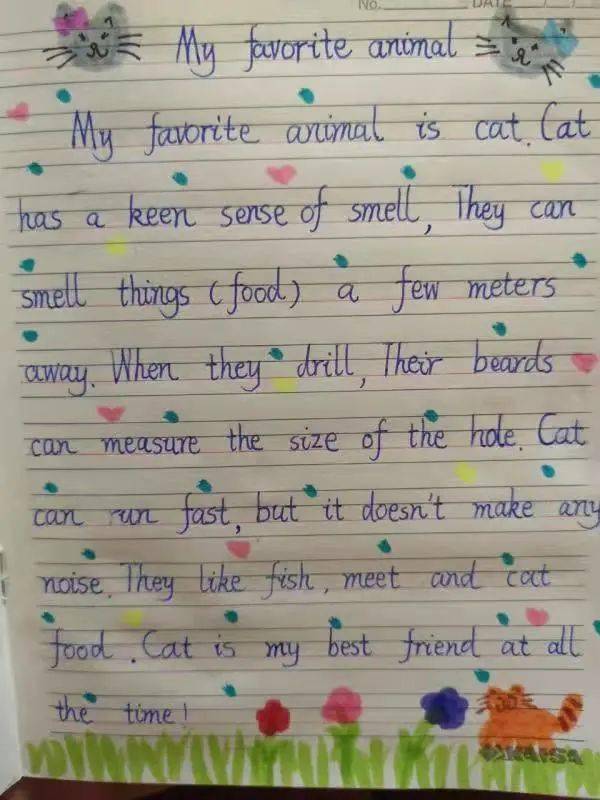 No. DATE
My favorite animal
My favorite animal is cat. Cat
has a keen sense of smell, They can
smell things (food) a few meters
away. When they drill, Their beards
can measure the size of the hole. Cat
can run fast, but it doesn't make any
noise. They like fish, meet and cat
food. Cat is my best friend at all
the time!